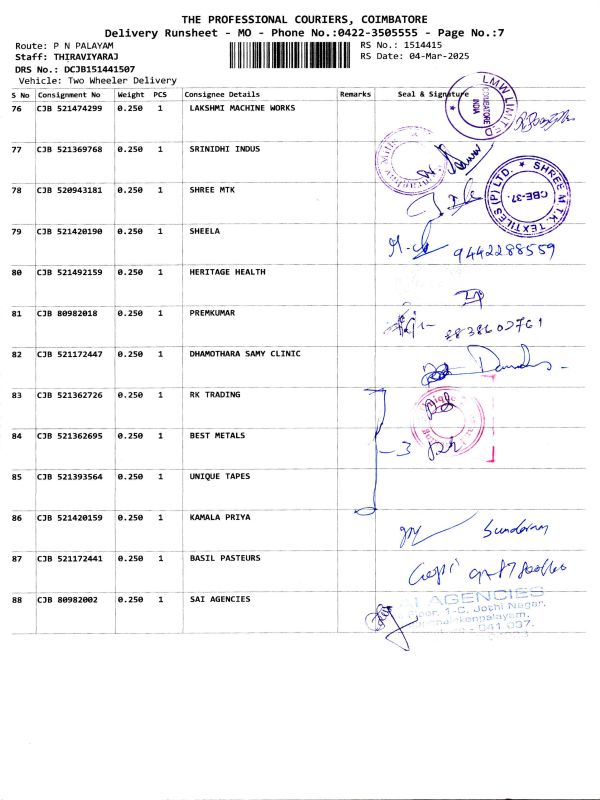 THE PROFESSIONAL COURIERS, COIMBATORE
Delivery Runsheet - MO - Phone No.:0422-3505555 - Page No.:7
Route: P N PALAYAM
RS No.: 1514415
Staff: THIRAVIYARAJ
RS Date: 04-Mar-2025
DRS No.: DCJB151441507
Vehicle: Two Wheeler Delivery
S No Consignment No Weight PCS Consignee Details Remarks Seal & Signature
76 CJB 521474299 0.250 1 LAKSHMI MACHINE WORKS
LMW LIMITED
COIMBATORE
INDIA
77 CJB 521369768 0.250 1 SRINIDHI INDUS
78 CJB 520943181 0.250 1 SHREE MTK
SHREE M.T.K. TEXTILES (P) LTD.
CBE-37.
79 CJB 521420190 0.250 1 SHEELA
9442288559
80 CJB 521492159 0.250 1 HERITAGE HEALTH
81 CJB 80982018 0.250 1 PREMKUMAR
82 CJB 521172447 0.250 1 DHAMOTHARA SAMY CLINIC
83 CJB 521362726 0.250 1 RK TRADING
84 CJB 521362695 0.250 1 BEST METALS
3
85 CJB 521393564 0.250 1 UNIQUE TAPES
86 CJB 521420159 0.250 1 KAMALA PRIYA
Sundaram
87 CJB 521172441 0.250 1 BASIL PASTEURS
Gopi
88 CJB 80982002 0.250 1 SAI AGENCIES
AGENCIES
1-C, Jothi Nagar,
641 037.